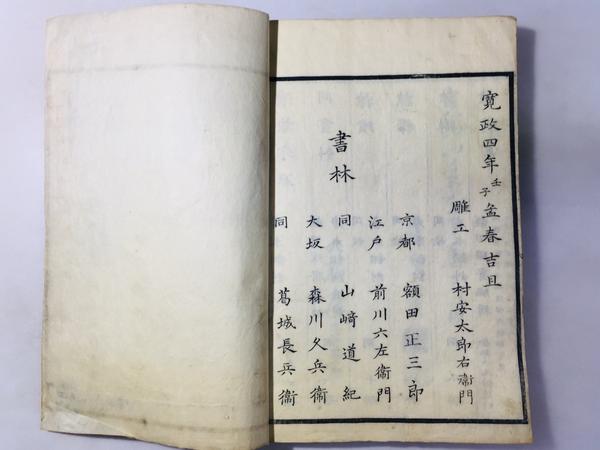 寛政四年壬子孟春吉旦
雕工 村安太郎右衞門
京都 額田正三郎
江戸 前川六左衞門
同 山﨑道紀
書林
大坂 森川久兵衞
同 葛城長兵衞